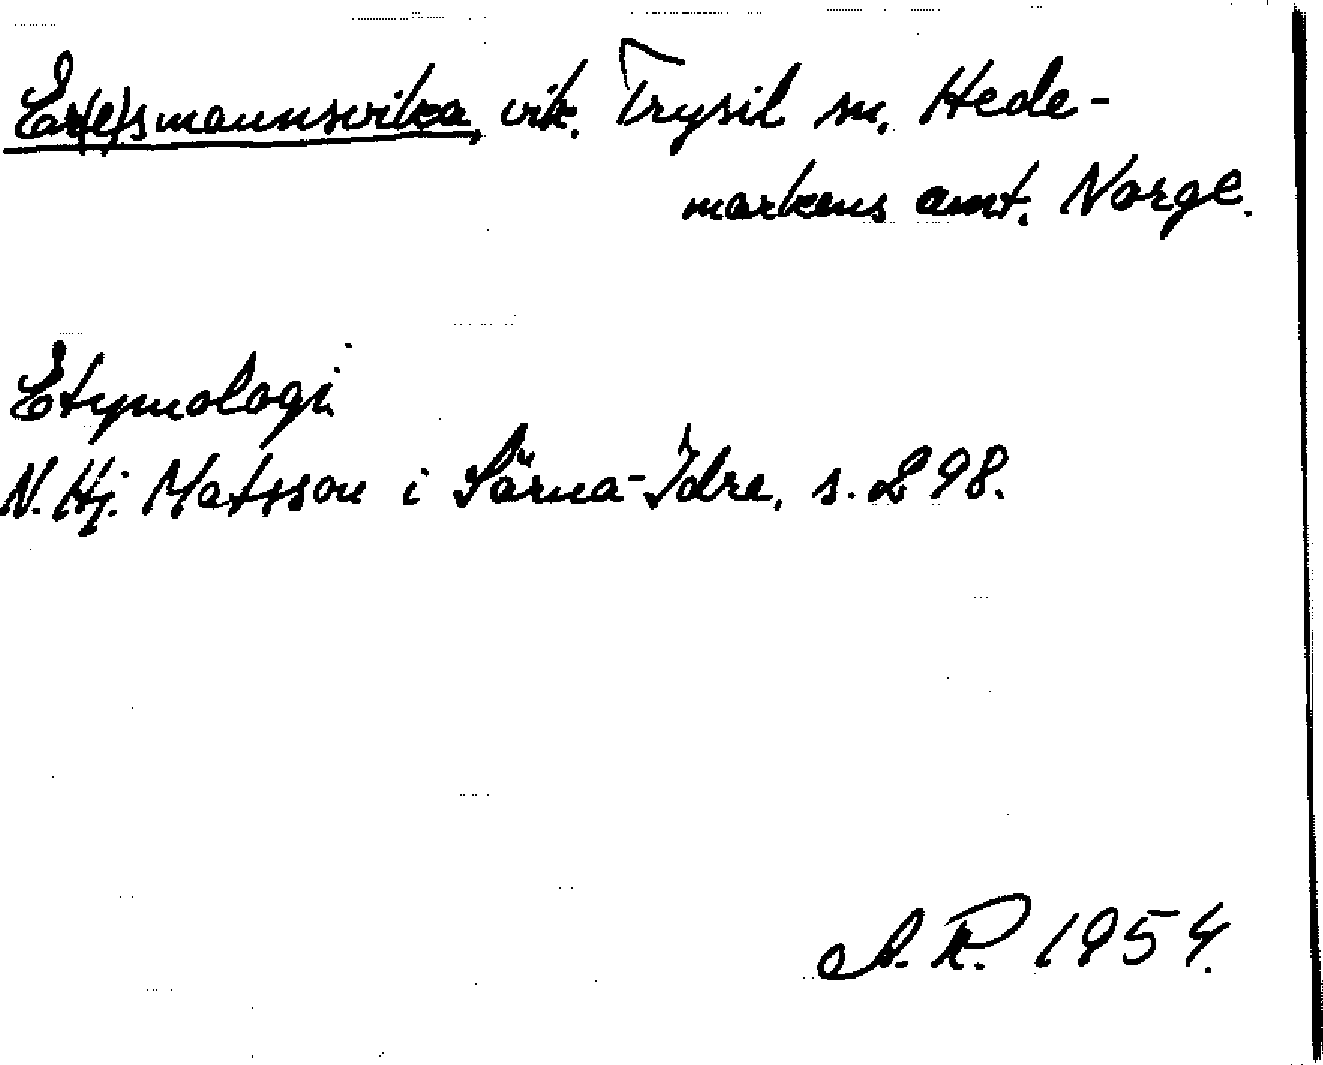 Er(e)smannsvika, vik. Trysil sn. Hede-
markens amt. Norge.
Etymologi
N. Hj. Matsson i Särna-Idre, s. 298.
A. R. 1954.